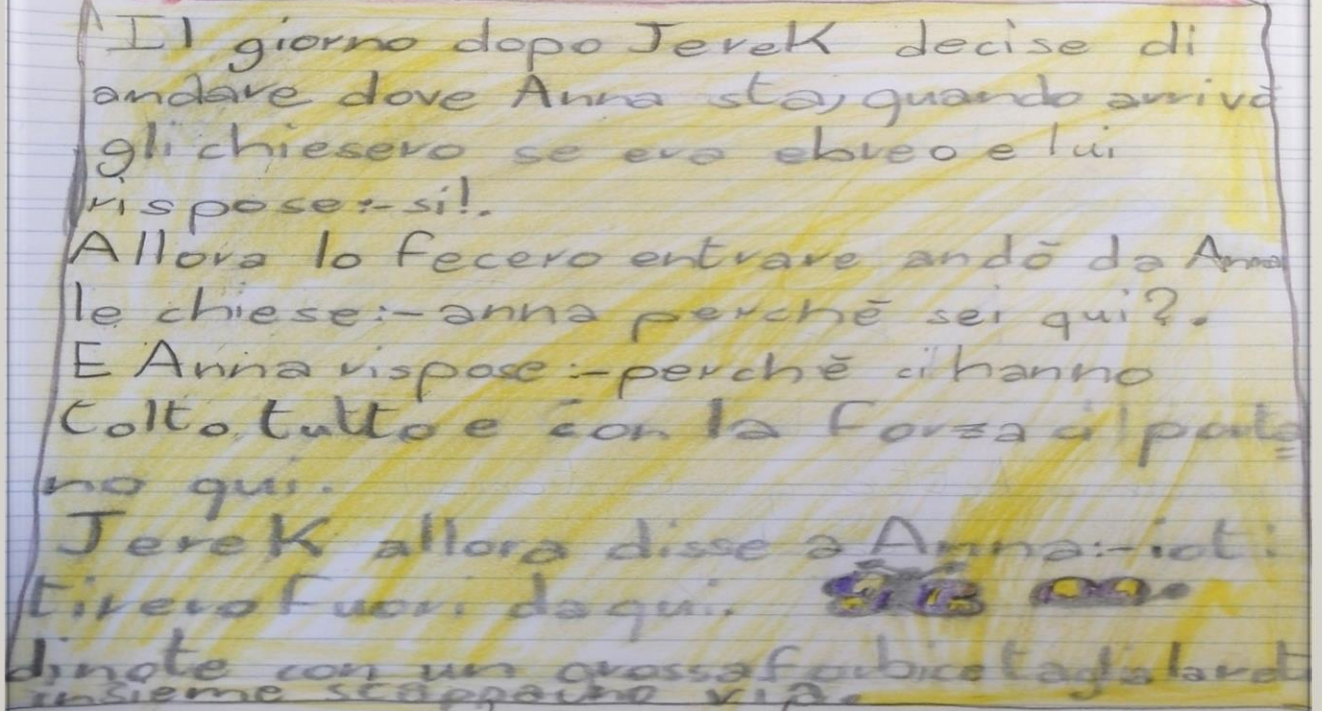 Il giorno dopo Jerek decise di
andare dove Anna sta, quando arrivò
gli chiesero se era ebreo e lui
rispose:-si!.
Allora lo fecero entrare andò da Anna
le chiese:-anna perchè sei qui?.
E Anna rispose:-perchè ci hanno
tolto tutto e con la forza ci porta
no qui.
Jerek allora disse a Anna:-iot i
tirero fuori da qui.
dinote con un grossa forbice taglia la ret
insieme scappauno via.